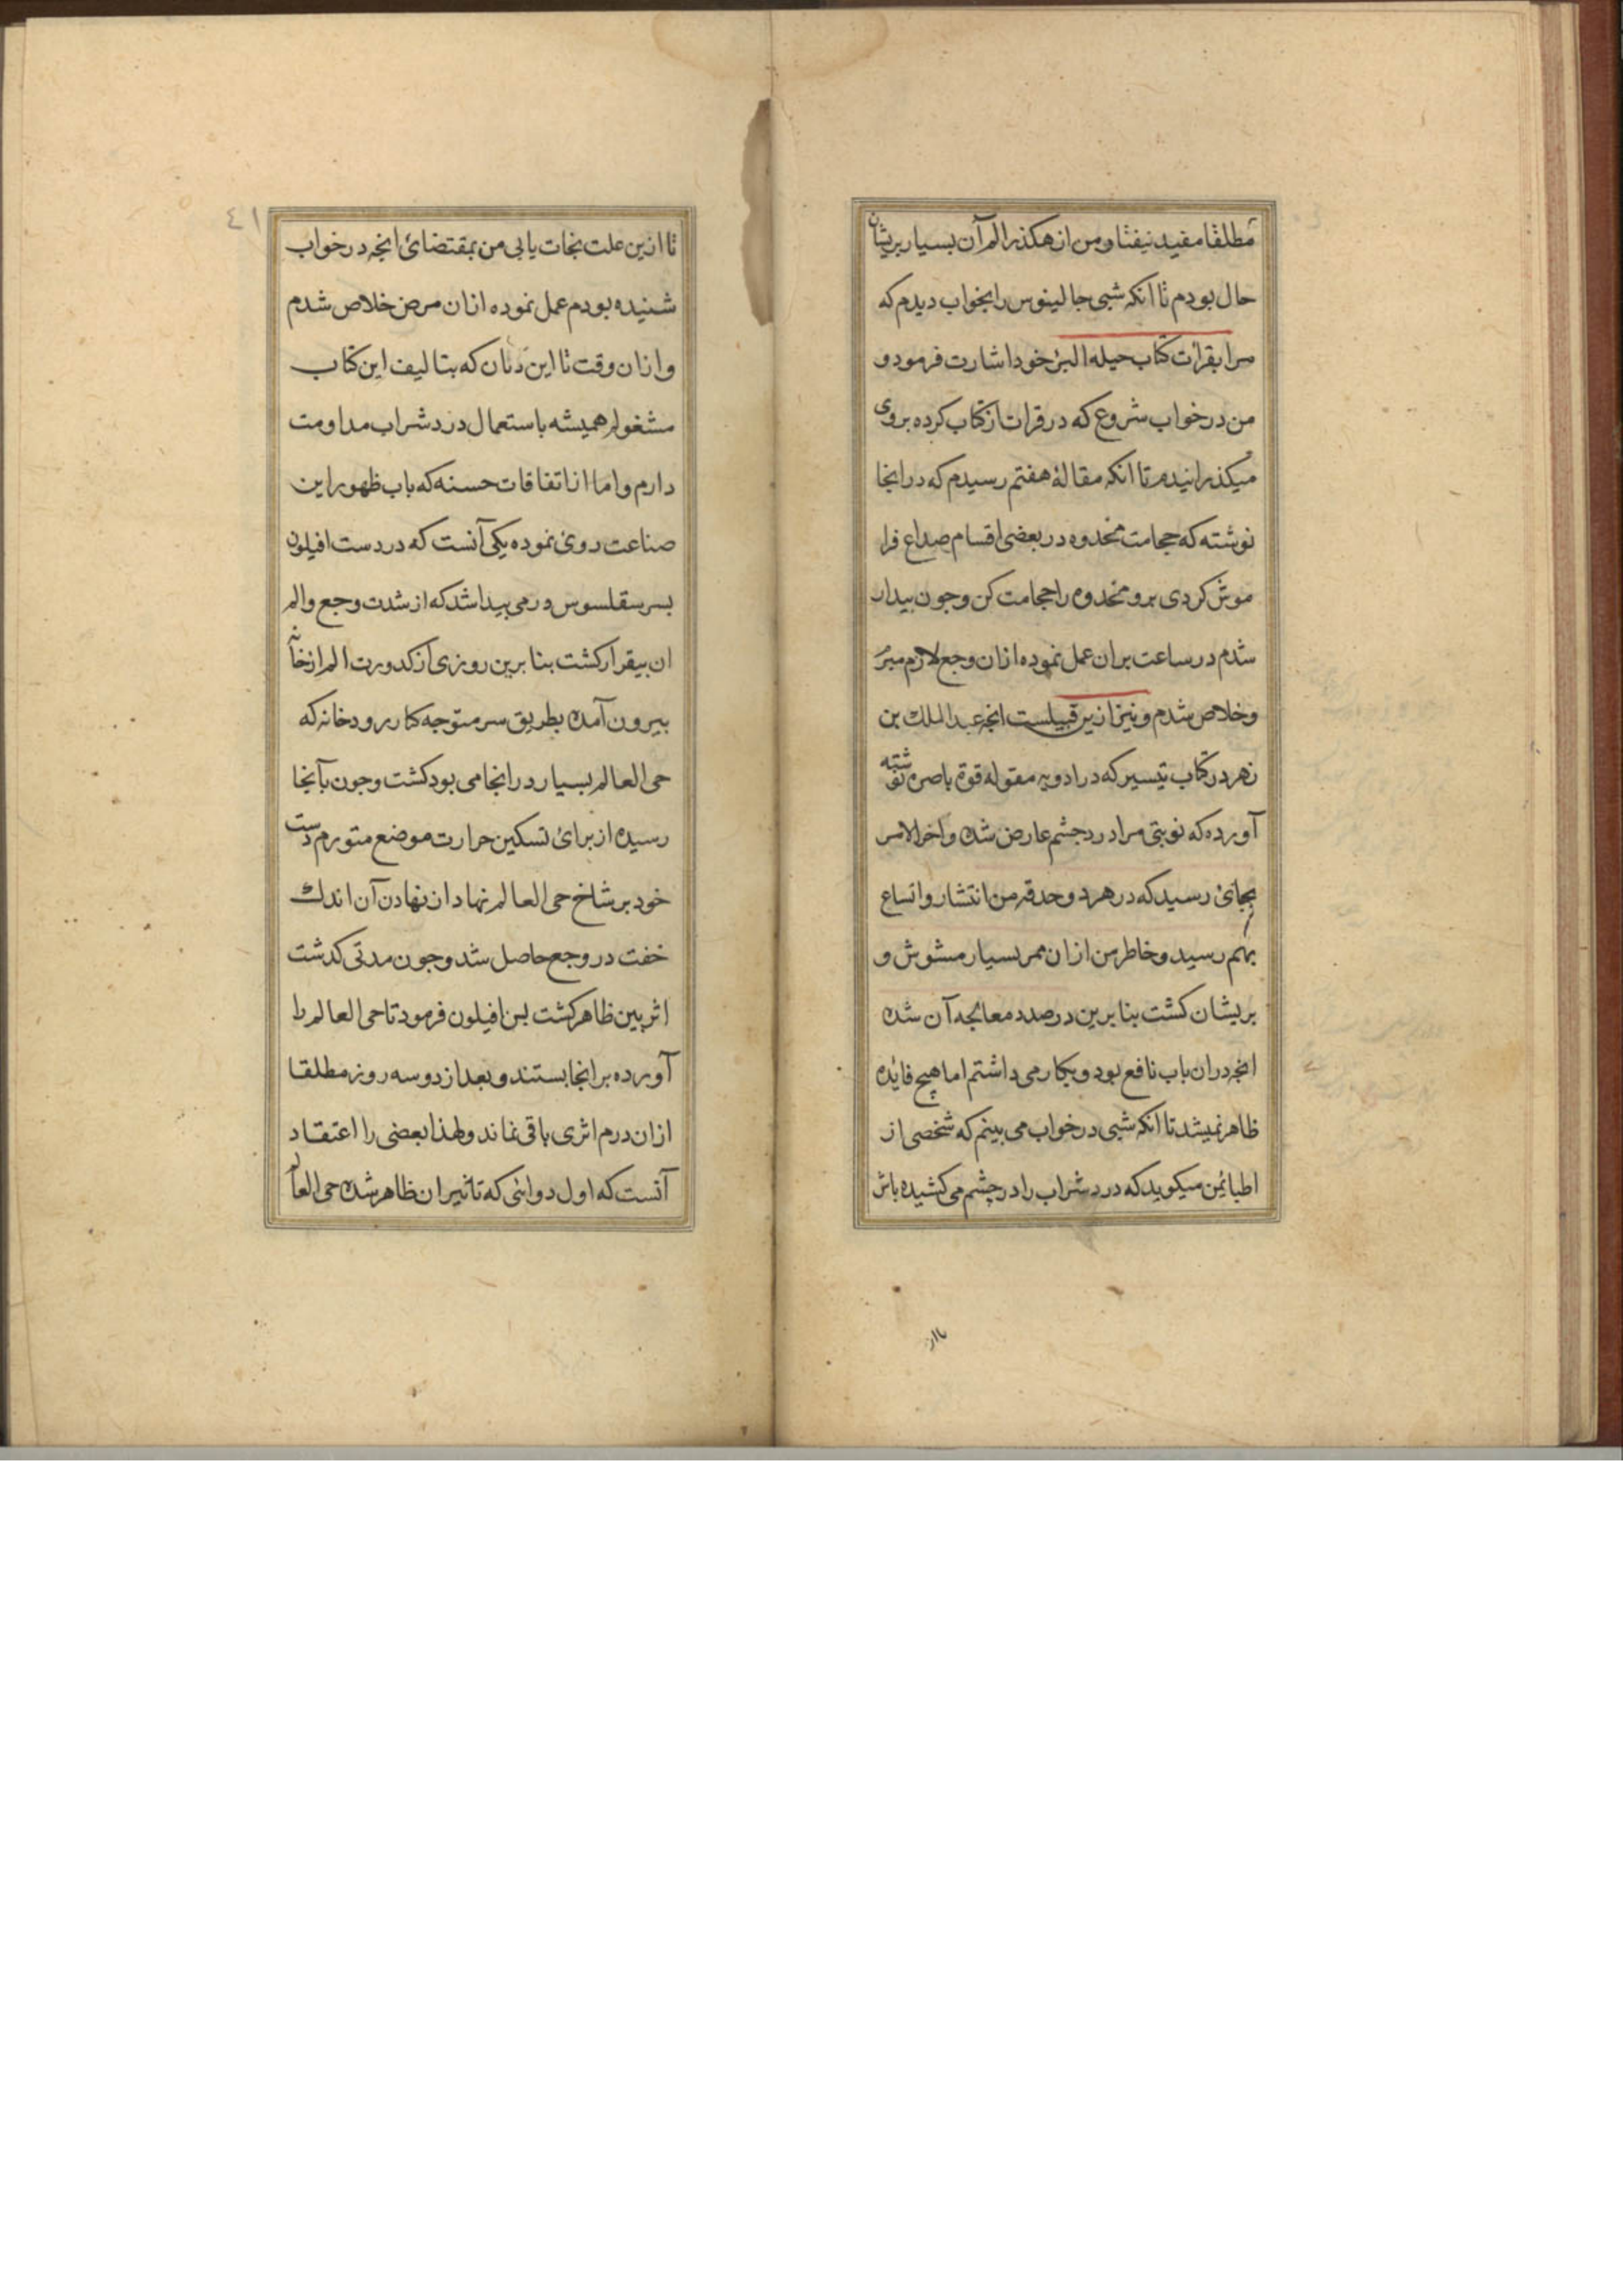 مطلقا مفید نیفتاد و من از هکذر الم آن بسیار پریشان
حال بودم تا انکه شبی جالینوس را بخواب دیدم که
مرا بقرائت کتاب حیله البرء خود اشارت فرمود و
من در خواب شروع که در قرات ان کتاب کرده بروی
میکذرانیدم تا انکه مقالهٔ هفتم رسیدم که در انجا
نوشته که حجامت مخدوه در بعضی اقسام صداع فرا
موش کردی برو مخدوه را حجامت کن و جون بیدار
شدم در ساعت بران عمل نموده ازان وجع لازم مبر
وخلاص شدم و نیز ازین قبیلست انجه عبدالملك بن
زهر در کتاب تیسیر که در ادویه مقوله قوة باصره نوشته
آورده که نوبتی مرا درد جشم عارض شده و اخر الامر
بجائ رسید که در هر دو حدقه من انتشار و اتساع
بهم رسید و خاطر من ازان ممر بسیار مشوش و
بریشان کشت بنا برین در صدد معالجه آن شده
انجه دران باب نافع بود و بکار می داشتم اما هیچ فایده
ظاهر نمیشد تا انکه شبی در خواب می بینم که شخصی از
اطبا بمن میکوید که درد شراب را در چشم می کشیده باش
تا ازین
٤١
تا ازین علت نجات یابی من بمقتضائ انجه در خواب
شنیده بودم عمل نموده ازان مرض خلاص شدم
و ازان وقت تا این زمان که بتالیف این کتاب
مشغولم همیشه باستعمال درد شراب مداومت
دارم و اما از اتفاقات حسنه که باب ظهور این
صناعت روئ نموده یکی آنست که در دست افیلون
بسر سقلسوس ورمی بیدا شد که از شدت وجع و الم
ان بیقرار کشت بنا برین روزی از کدورت الم از خانه
بیرون آمده بطریق سر متوجه کنار رودخانه که
حی العالم بسیار در انجا می بود کشت و جون بآنجا
رسیده از برائ تسکین حرارت موضع متورم دست
خود بر شاخ حی العالم نهاد از نهادن آن اندك
خفت در وجع حاصل شد و جون مدتی کذشت
اثر بین ظاهر کشت بس افیلون فرمود تا حی العالم را
آورده بر انجا بستند و بعد از دو سه روز مطلقا
ازان درم اثری باقی نماند و لهذا بعضی را اعتقاد
آنست که اول دوائی که تاثیر ان ظاهر شده حی العالم